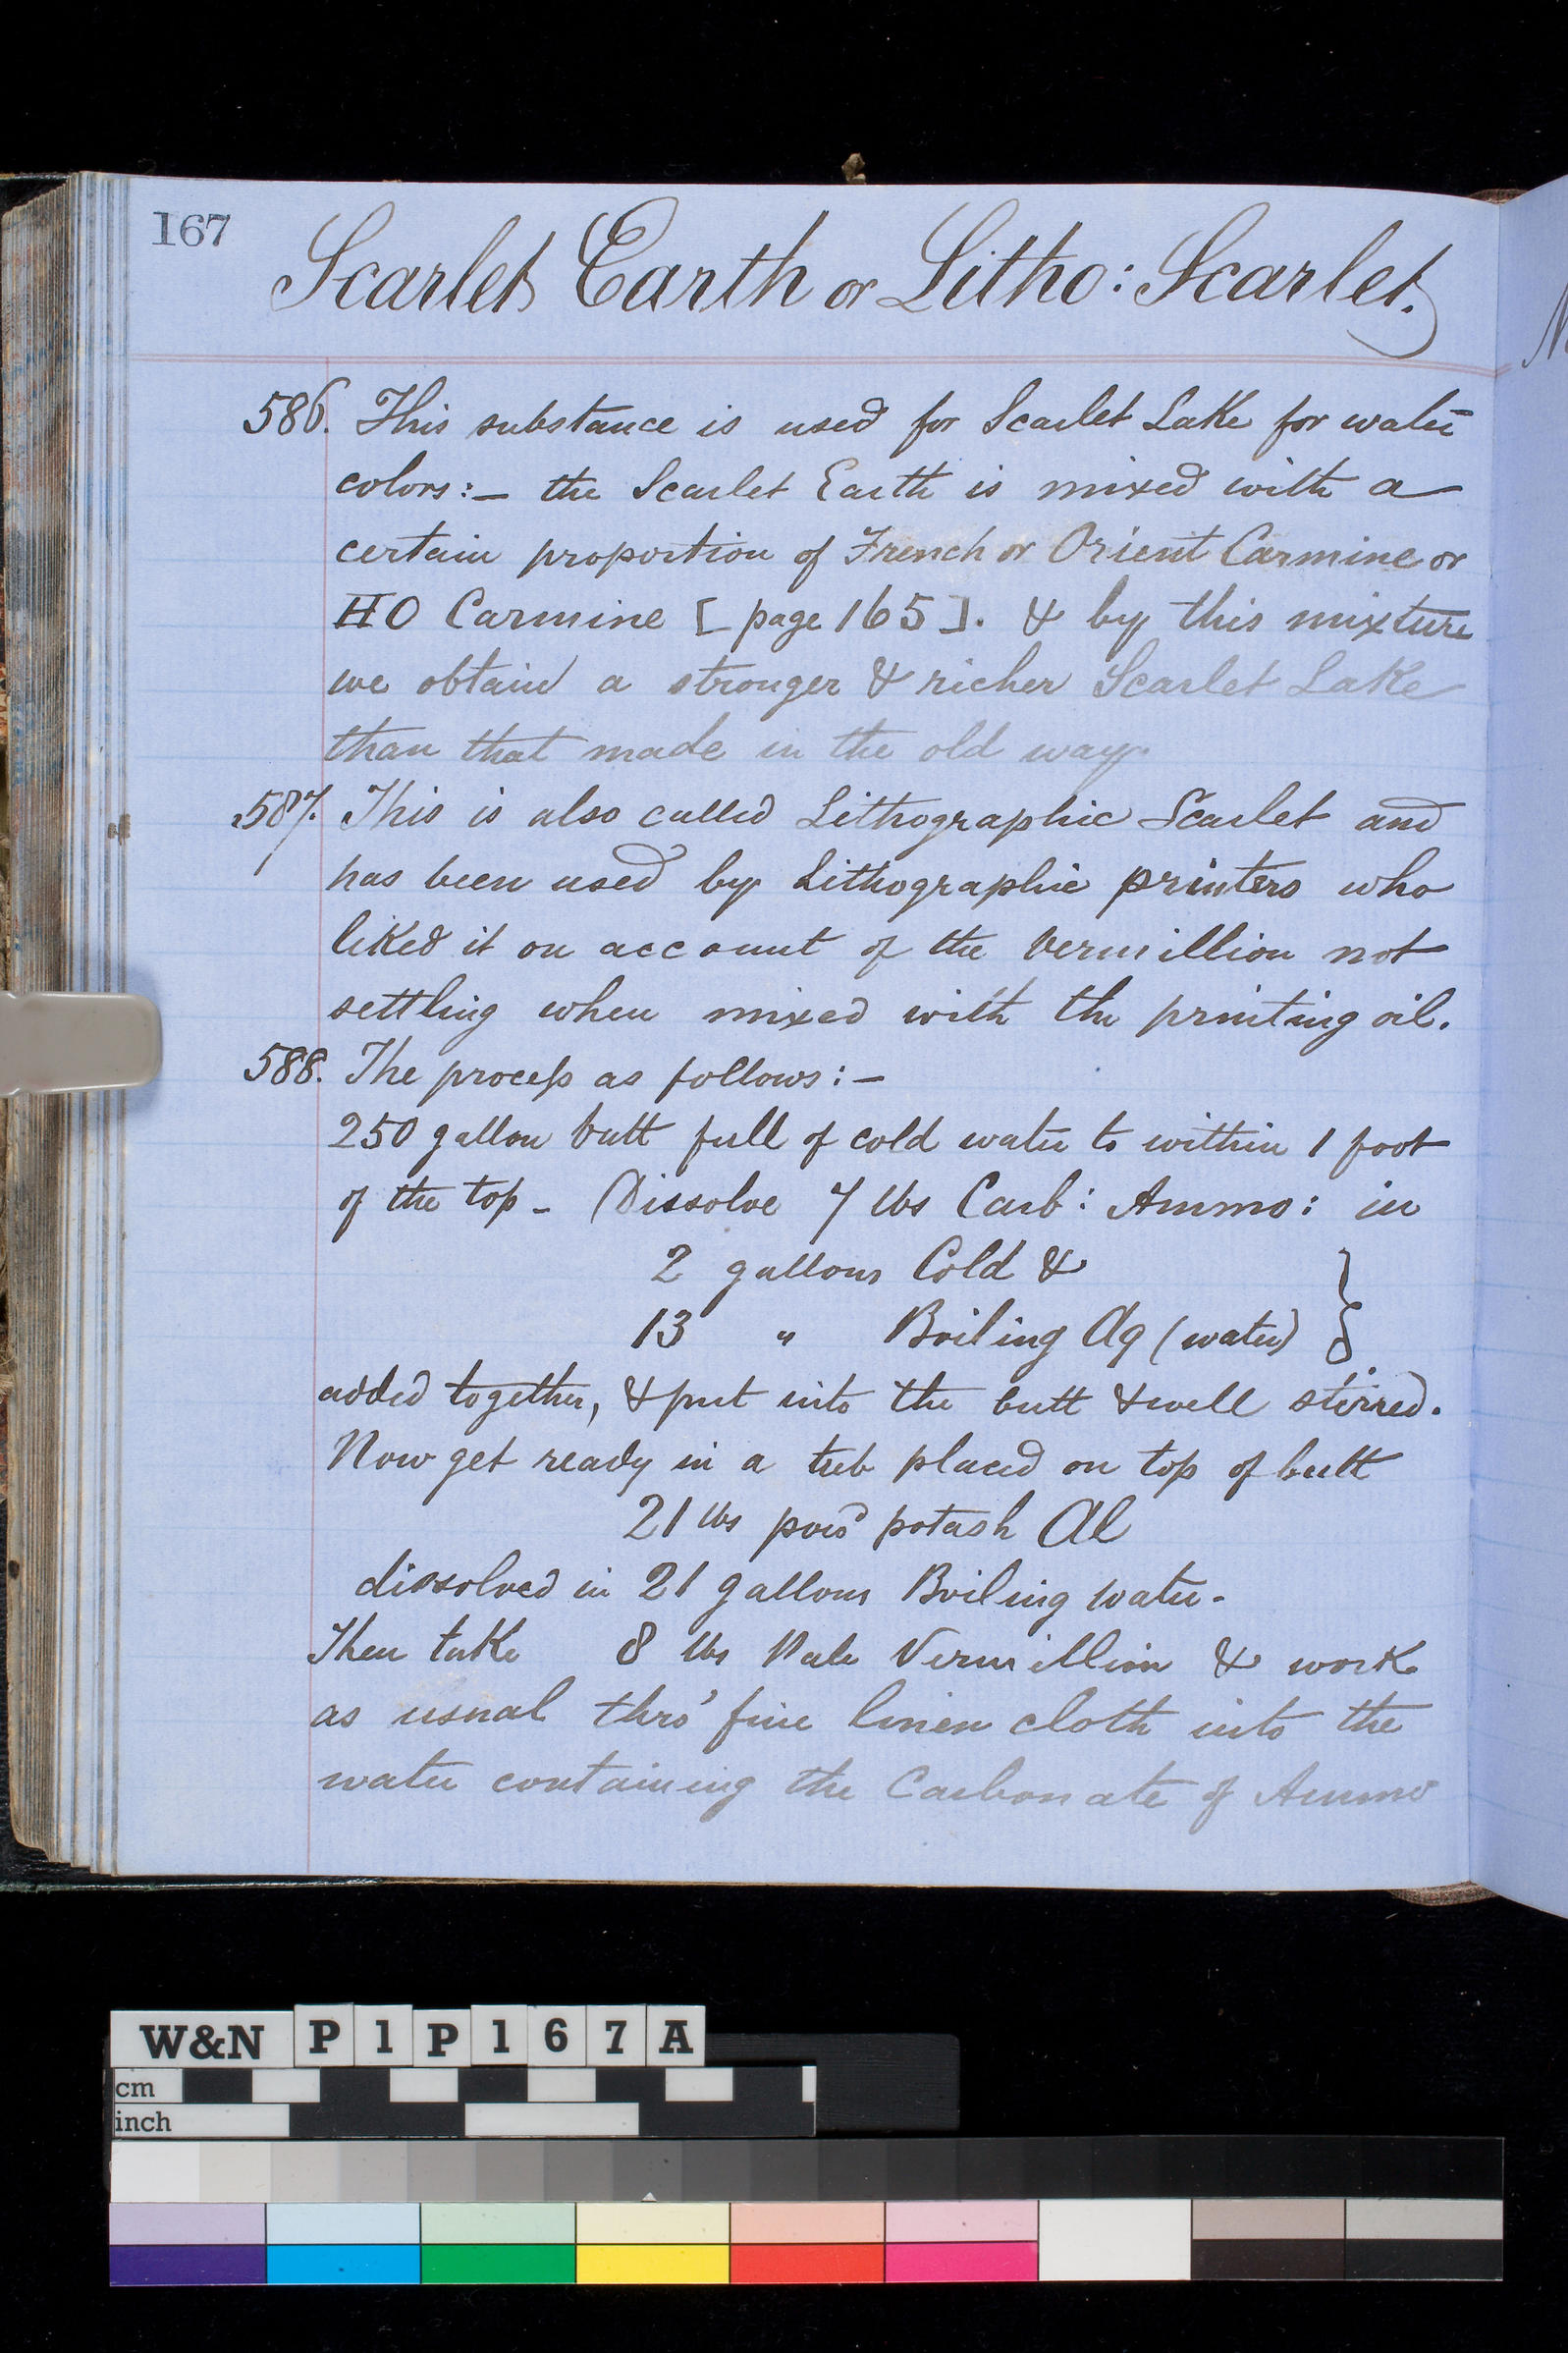 167
Scarlet Earth or Litho: Scarlet.
586. This substance is used for Scarlet Lake for water
colors:— the Scarlet Earth is mixed with a
certain proportion of French or Orient Carmine or
HO Carmine [page 165]. & by this mixture
we obtain a stronger & richer Scarlet Lake
than that made in the old way.
587. This is also called Lithographic Scarlet and
has been used by Lithographic printers who
liked it on account of the Vermillion not
settling when mixed with the printing oil.
588. The process as follows:—
250 gallon butt full of cold water to within 1 foot
of the top - Dissolve 7 lbs Carb: Ammo: in
2 gallons Cold & }
13 " Boiling Aq (water)
added together, & put into the butt & well stirred.
Now get ready in a tub placed on top of butt
21 lbs powd potash Al
dissolved in 21 gallons Boiling water.
Then take 8 lbs Pale Vermillion & work
as usual thro' fine linen cloth into the
water containing the Carbonate of Ammo
W&N P1P167A
cm
inch